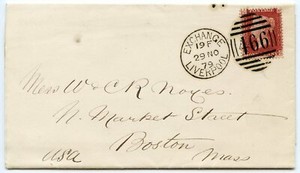 EXCHANGE
19 F
29 NO
79
LIVERPOOL
466
Mess W & C R Noyes.
N. Market Street
Boston
USA Mass